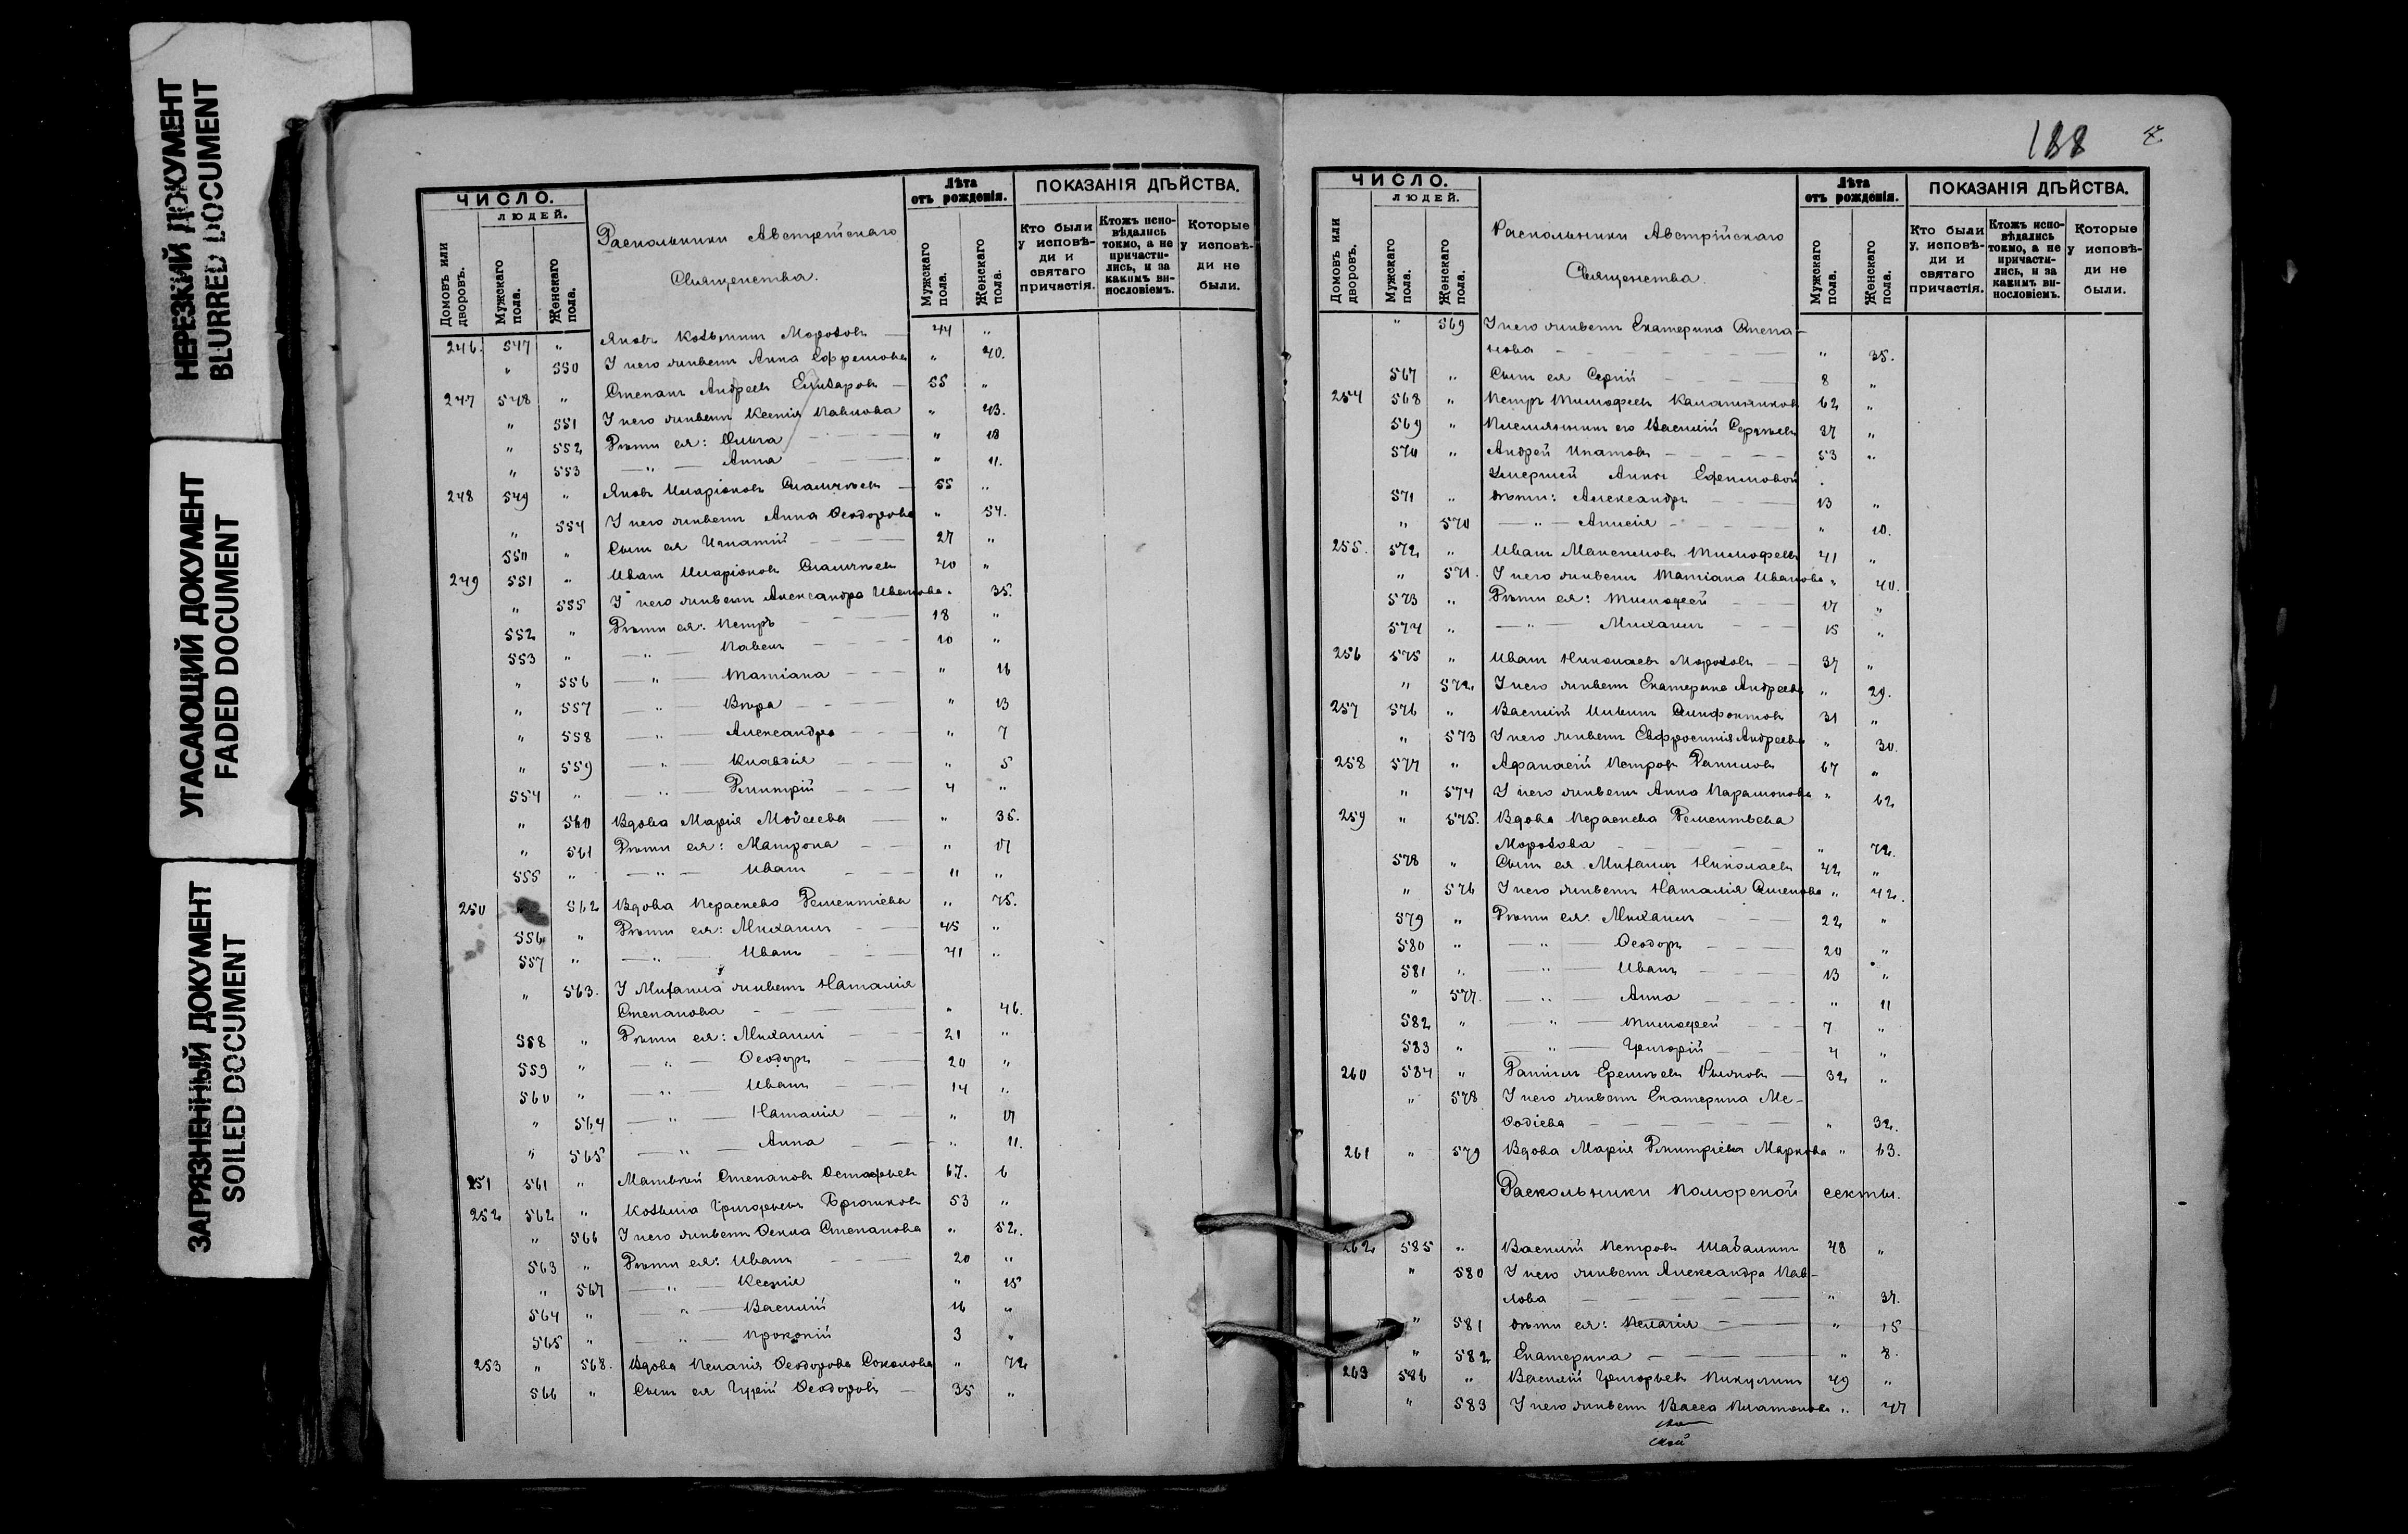 НЕРЕЗКИЙ ДОКУМЕНТ
BLURRED DOCUMENT
УГАСАЮЩИЙ ДОКУМЕНТ
FADED DOCUMENT
ЗАГРЯЗНЕННЫЙ ДОКУМЕНТ
SOILED DOCUMENT
ЧИСЛО.
ЛЮДЕЙ.
Домовъ или дворовъ.
Мужскаго пола.
Женскаго пола.
Раскольники Австрійскаго
Священства.
Лѣта отъ рожденія.
Мужскаго пола.
Женскаго пола.
ПОКАЗАНІЯ ДѢЙСТВА.
Кто были у исповѣди и святаго причастія.
Ктожъ исповѣдались токмо, а не причастились, и за какимъ винословіемъ.
Которые у исповѣди не были.
246. 547 " Яковъ Козьминъ Морозовъ — 44 "
" 550 У него живетъ Анна Ефремова " 40.
247 548 " Степанъ Андреевъ Елизаровъ — 55 "
" 551 У него живетъ Ксенія Павлова " 43.
" 552 Дѣти ея: Ольга " 18
" 553 — " — Анна " 11.
248 549 " Яковъ Иларіоновъ — 55 "
" 554 У него живетъ Анна Ѳеодорова " 54.
550 " Сынъ ея Игнатій 27 "
249 551 " Иванъ Иларіоновъ 40 "
" 555 У него живетъ Александра Иванова " 35.
552 " Дѣти ея: Петръ 18 "
553 " — " — Павелъ 10 "
" 556 — " — Татіана " 16
" 557 — " — Вѣра " 13
" 558 — " — Александра " 7
" 559 — " — Клавдія " 5
554 " — " — Дмитрій 4 "
" 560 Вдова Марія Моѵсеева " 35.
" 561 Дѣти ея: Матрона " 17
555 " — " — Иванъ 11 "
250 " 562 Вдова Параскева Дементіева " 75.
556 " Дѣти ея: Михаилъ 45 "
557 " — " — Иванъ 41 "
" 563. У Михаила живетъ Наталія
Степанова " 46.
558 " Дѣти ея: Михаилъ 21 "
559 " — " — Ѳеодоръ 20 "
560 " — " — Иванъ 14 "
" 564 — " — Наталія " 17
" 565 — " — Анна " 11.
251 561 " Матвѣй Степановъ Остафьевъ 67. 6
252 562 " Козьма Григорьевъ 53 "
" 566 У него живетъ Ѳекла Степанова " 52.
563 " Дѣти ея: Иванъ 20 "
" 567 — " — Ксенія " 15
564 " — " — Василій 16 "
565 " — " — Прокопій 3 "
253 " 568. Вдова Пелагія Ѳеодорова Соколова " 72
566 " Сынъ ея Гурій Ѳеодоровъ — 35 "
188
ЧИСЛО.
ЛЮДЕЙ.
Домовъ или дворовъ.
Мужскаго пола.
Женскаго пола.
Раскольники Австрійскаго
Священства.
Лѣта отъ рожденія.
Мужскаго пола.
Женскаго пола.
ПОКАЗАНІЯ ДѢЙСТВА.
Кто были у исповѣди и святаго причастія.
Ктожъ исповѣдались токмо, а не причастились, и за какимъ винословіемъ.
Которые у исповѣди не были.
" 569 У него живетъ Екатерина Степа-
нова " 35.
567 " Сынъ ея Сергій 8 "
254 568 " Петръ Тимофеевъ Калашниковъ 62 "
569 " Племянникъ его Василій Сергѣевъ 37 "
570 " Андрей Ипатовъ 53 "
Умершей Анны Ефимовой
571 " дѣти: Александръ 13 "
" 570 — " — Анисія " 10.
255. 572 " Иванъ Максимовъ Тимофеевъ 41 "
" 571. У него живетъ Татіана Иванова " 40.
573 " Дѣти ея: Тимофей 17 "
574 " — " — Михаилъ 15 "
256 575 " Иванъ Николаевъ Морозовъ 37 "
" 572 У него живетъ Екатерина Андреева " 29.
257 576 " Василій Ильинъ 31 "
" 573 У него живетъ Евфросинія Андреева " 30.
258 577 " Афанасій Петровъ Даниловъ 67 "
" 574 У него живетъ Анна Парамонова " 62
259 " 575. Вдова Параскева Дементьева
Морозова " 72.
578 " Сынъ ея Михаилъ Николаевъ 42 "
" 576 У него живетъ Наталія " 42.
579 " Дѣти ея: Михаилъ 22 "
580 " — " — Ѳеодоръ 20 "
581 " — " — Иванъ 13 "
" 577. — " — Анна " 11
582 " — " — Тимофей 7 "
583 " — " — Григорій 4 "
260 584 " Даніилъ Еремѣевъ — 32 "
" 578 У него живетъ Екатерина Ме-
ѳодіева " 32.
261 " 579 Вдова Марія Дмитріева Маркова " 63.
Раскольники Поморской секты.
262 585 " Василій Петровъ Шабалинъ 48 "
" 580 У него живетъ Александра Пав-
лова " 37.
" 581 дѣти ея: Пелагія " 15
" 582 Екатерина " 8.
263 586 " Василій Григорьевъ Пикулинъ 49 "
" 583 У него живетъ Васса Платонова " 47